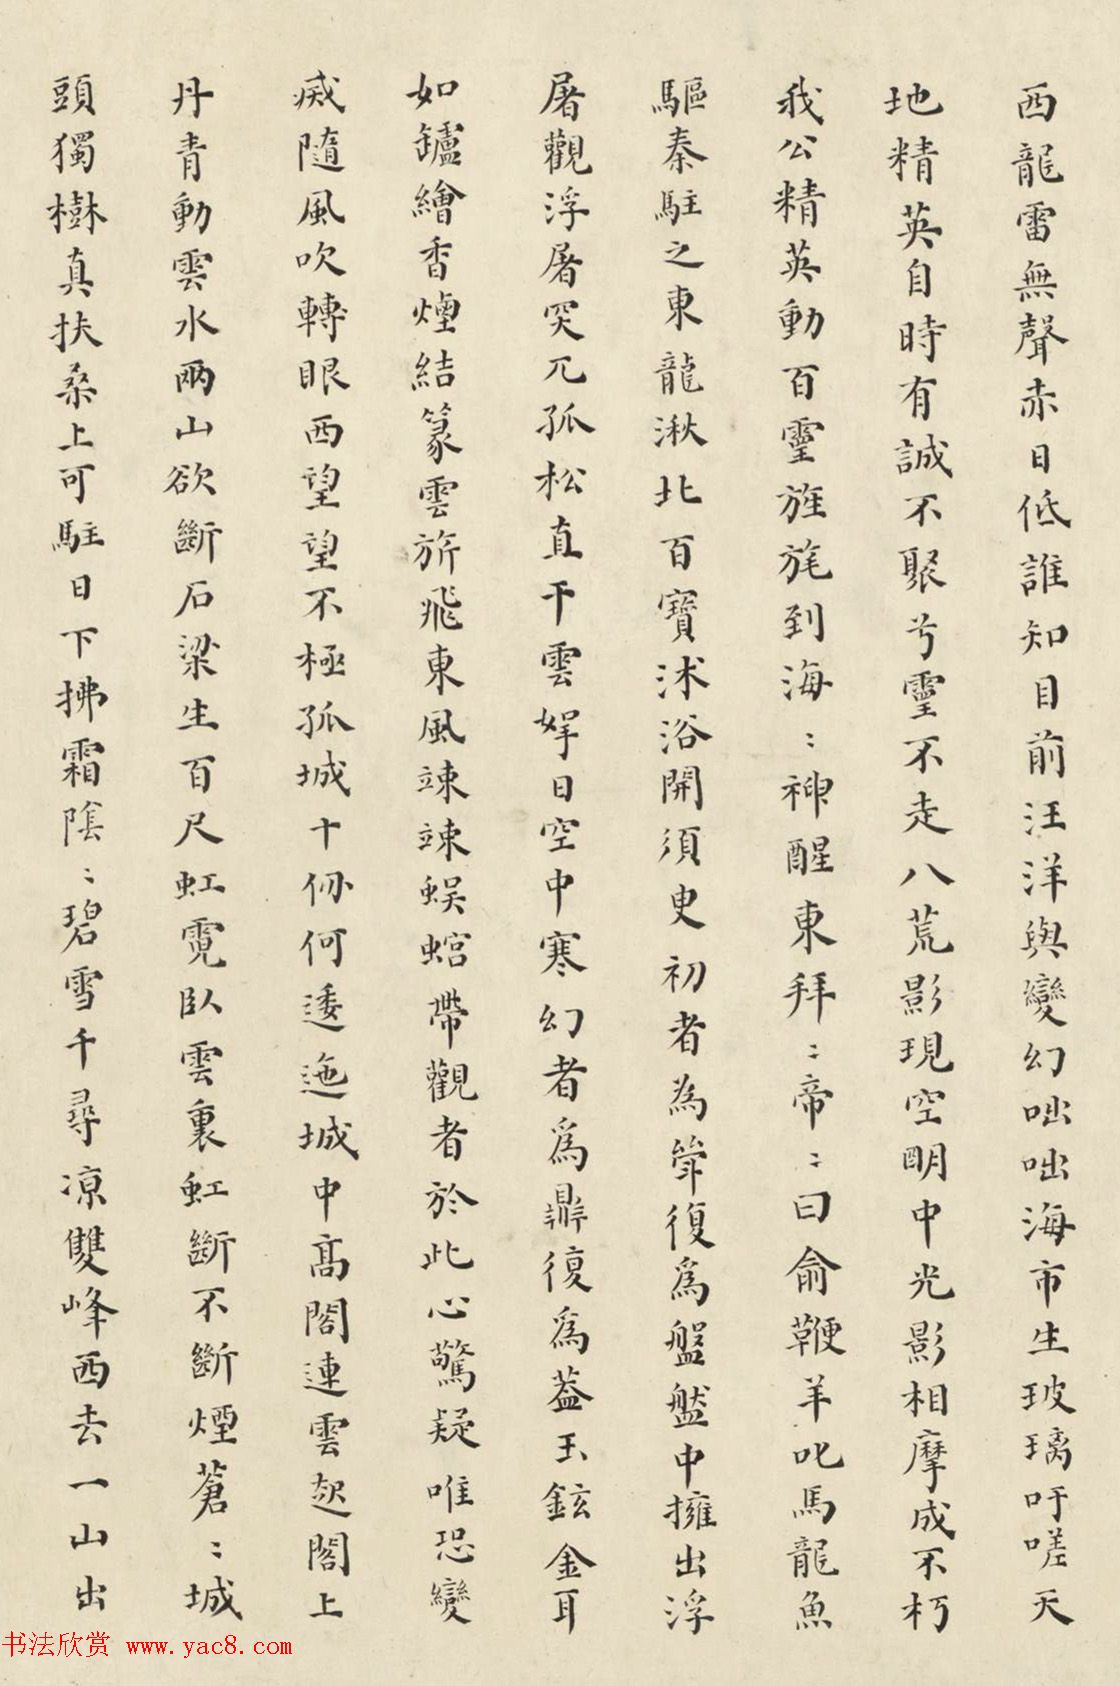 西龍雷無聲赤日低誰知目前汪洋與變幻咄咄海市生玻璃吁嗟天
地精英自時有誠不聚兮靈不走八荒影現空明中光影相摩成不朽
我公精英動百靈旌旄到海：神醒東拜：帝：曰俞鞭羊叱馬龍魚
驅秦駐之東龍湫北百寶沐浴開須臾初者為斝復為盤盤中擁出浮
屠觀浮屠突兀孤松直干雲捋日空中寒幻者為鼎復為蓋玉鉉金耳
如鑪繪香煙結篆雲旂飛東風竦竦蜈蝣帶觀者於此心驚疑唯恐變
滅隨風吹轉眼西望望不極孤城十仞何逶迤城中高閣連雲起閣上
丹青動雲水兩山欲斷石梁生百尺虹霓臥雲裏虹斷不斷煙蒼：城
頭獨樹真扶桑上可駐日下拂霜陰：碧雪千尋涼雙峰西去一山出
书法欣赏 www.yac8.com